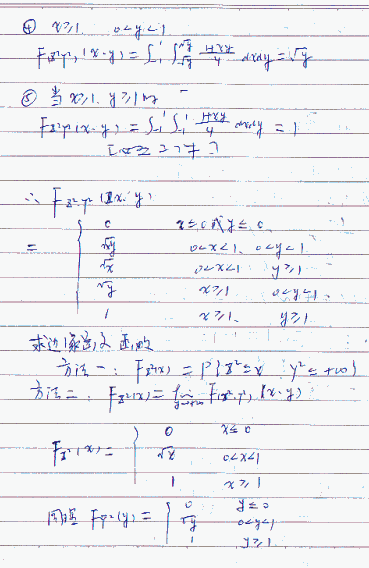 ④ x≥1, 0<y<1
F(X²,Y²)(x·y) = ∫₋₁¹ ∫₋√y^√y (1+xy)/4 dxdy = √y
⑤ 当 x≥1. y≥1时
F X²Y²(x·y) = ∫₋₁¹ ∫₋₁¹ (1+xy)/4 dxdy = 1
∴ F X²·Y² (x. y)
= { 0 x≤0或y≤0
√y 0<x<1, 0<y<1
√x 0<x<1 y≥1
√y x≥1 0<y<1
1 x≥1. y≥1
求边缘 函数
方法一: F X²(x) = P{X²≤x Y²≤+∞)
方法二: F X²(x) = lim y→+∞ F(X²·Y²) (x·y)
F X²(x) = { 0 x≤0
√x 0<x<1
1 x≥1
同理 F Y²(y) = { 0 y≤0
√y 0<y<1
1 y≥1